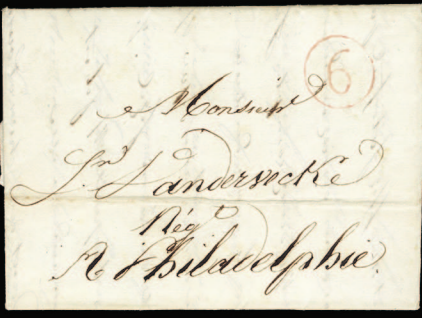 6
Monsieur
Jn. Vanderveckke
Négt
A Philadelphie.